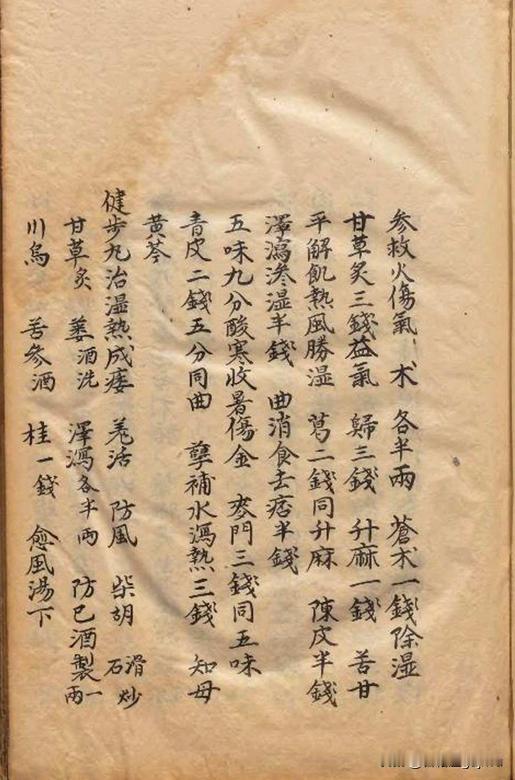 参救火傷氣 术各半兩 蒼术一錢除湿
甘草炙三錢益氣 歸三錢 升麻一錢 苦甘
平解飢熱風勝湿 葛二錢同升麻 陳皮半錢
澤瀉滲湿半錢 曲消食去痞半錢
五味九分酸寒收暑傷金 麥門三錢同五味
青皮二錢五分同曲 孽補水瀉熱三錢 知母
黄芩
健步丸治湿熱成痿 羌活 防風 柴胡 滑石炒一兩
甘草炙 蔞酒洗 澤瀉各半兩 防已酒製
川烏 苦參酒 桂一錢 愈風湯下